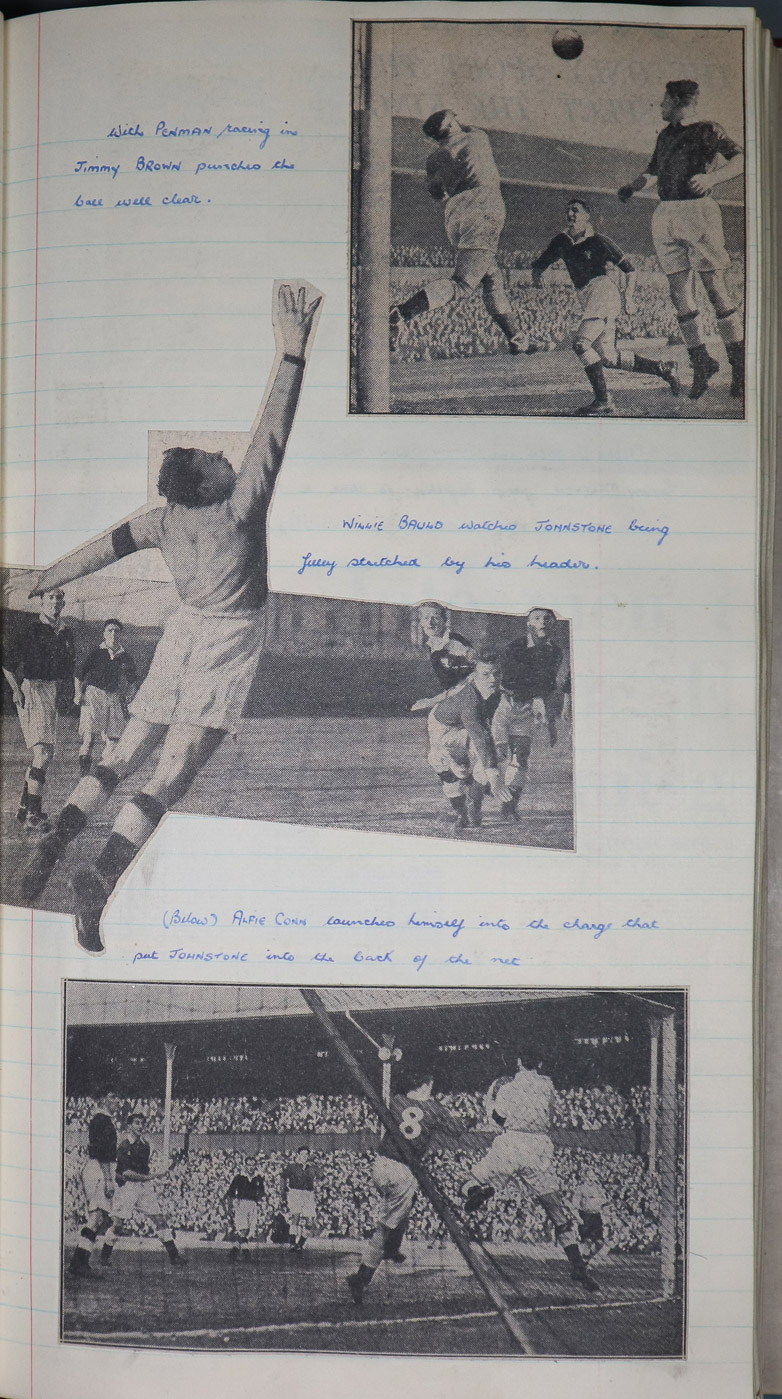 With PENMAN racing in
Jimmy BROWN punches the
ball well clear.
WILLIE BAULD watches JOHNSTONE being
fully stretched by his header.
(Below) ALFIE CONN launches himself into the charge that
put JOHNSTONE into the back of the net
8